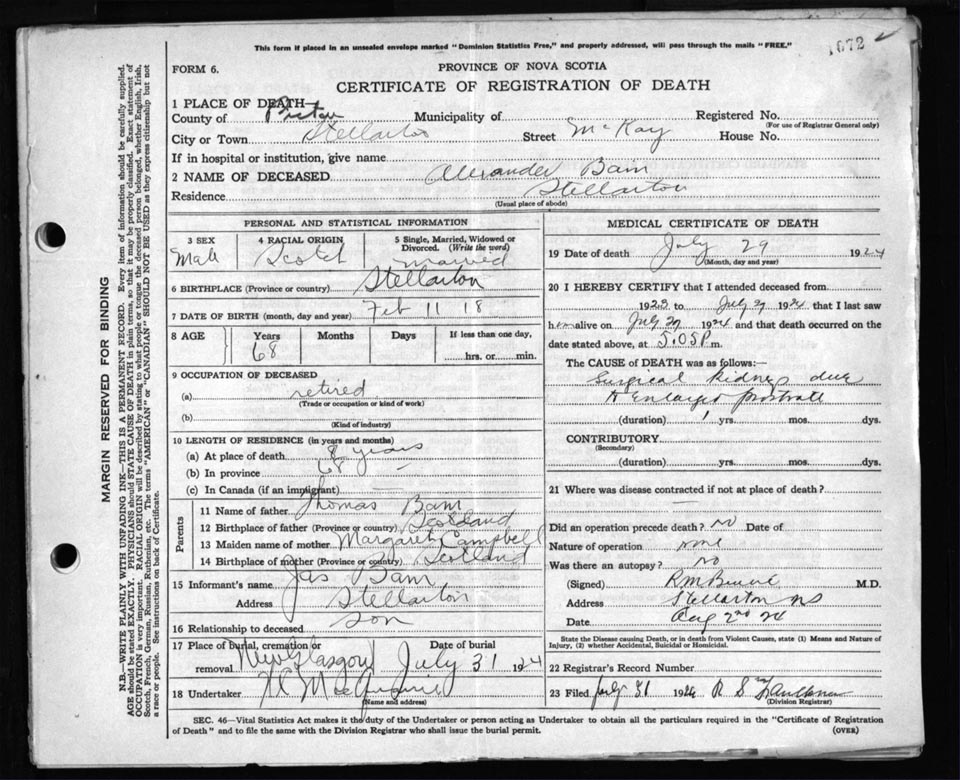 1672
This form if placed in an unsealed envelope marked "Dominion Statistics Free," and properly addressed, will pass through the mails "FREE."
FORM 6.
PROVINCE OF NOVA SCOTIA
CERTIFICATE OF REGISTRATION OF DEATH
1 PLACE OF DEATH—
County of Pictou Municipality of Registered No.
(For use of Registrar General only)
City or Town Stellarton Street McKay House No.
If in hospital or institution, give name
2 NAME OF DECEASED Alexander Bain
Residence Stellarton
(Usual place of abode)
PERSONAL AND STATISTICAL INFORMATION
3 SEX 4 RACIAL ORIGIN 5 Single, Married, Widowed or Divorced. (Write the word)
Male Scotch Married
6 BIRTHPLACE (Province or country) Stellarton
7 DATE OF BIRTH (month, day and year) Feb 11 18
8 AGE Years Months Days If less than one day,
68 hrs. or min.
9 OCCUPATION OF DECEASED
(a) retired
(Trade or occupation or kind of work)
(b)
(Kind of industry)
10 LENGTH OF RESIDENCE (in years and months)
(a) At place of death 8 years
(b) In province 68
(c) In Canada (if an immigrant)
Parents
11 Name of father Thomas Bain
12 Birthplace of father (Province or country) Scotland
13 Maiden name of mother Margaret Campbell
14 Birthplace of mother (Province or country) Scotland
15 Informant's name Jas Bain
Address Stellarton
16 Relationship to deceased Son
17 Place of burial, cremation or removal New Glasgow Date of burial July 31 1924
18 Undertaker
(Name and address)
MEDICAL CERTIFICATE OF DEATH
19 Date of death July 29 1924
(Month, day and year)
20 I HEREBY CERTIFY that I attended deceased from
1923 to July 29 1924 that I last saw
him alive on July 29 1924 and that death occurred on the
date stated above, at 5.05 P m.
The CAUSE OF DEATH was as follows:—
Surgical Kidney due
to Enlarged prostrate
(duration) 1 yrs. mos. dys.
CONTRIBUTORY
(Secondary)
(duration) yrs. mos. dys.
21 Where was disease contracted if not at place of death?
Did an operation precede death? no Date of
Nature of operation none
Was there an autopsy? no
(Signed) M.D.
Address Stellarton NS
Date Aug 2nd 24
State the Disease causing Death, or in death from Violent Causes, state (1) Means and Nature of Injury, (2) whether Accidental, Suicidal or Homicidal.
22 Registrar's Record Number
23 Filed July 31 1924 R S
(Division Registrar)
SEC. 46—Vital Statistics Act makes it the duty of the Undertaker or person acting as Undertaker to obtain all the particulars required in the "Certificate of Registration
of Death" and to file the same with the Division Registrar who shall issue the burial permit.
(OVER)
MARGIN RESERVED FOR BINDING
N.B.—WRITE PLAINLY WITH UNFADING INK—THIS IS A PERMANENT RECORD. Every item of information should be carefully supplied.
AGE should be stated EXACTLY. PHYSICIANS should STATE CAUSE OF DEATH in plain terms, so that it may be properly classified. Exact statement of
OCCUPATION is very important. RACIAL ORIGIN will be described by stating to what people or tongue the deceased person belonged, whether English, Irish,
Scotch, French, German, Russian, Ruthenian, etc. The terms "AMERICAN" or "CANADIAN" SHOULD NOT BE USED as they express citizenship but not
a race or people. See instructions on back of Certificate.